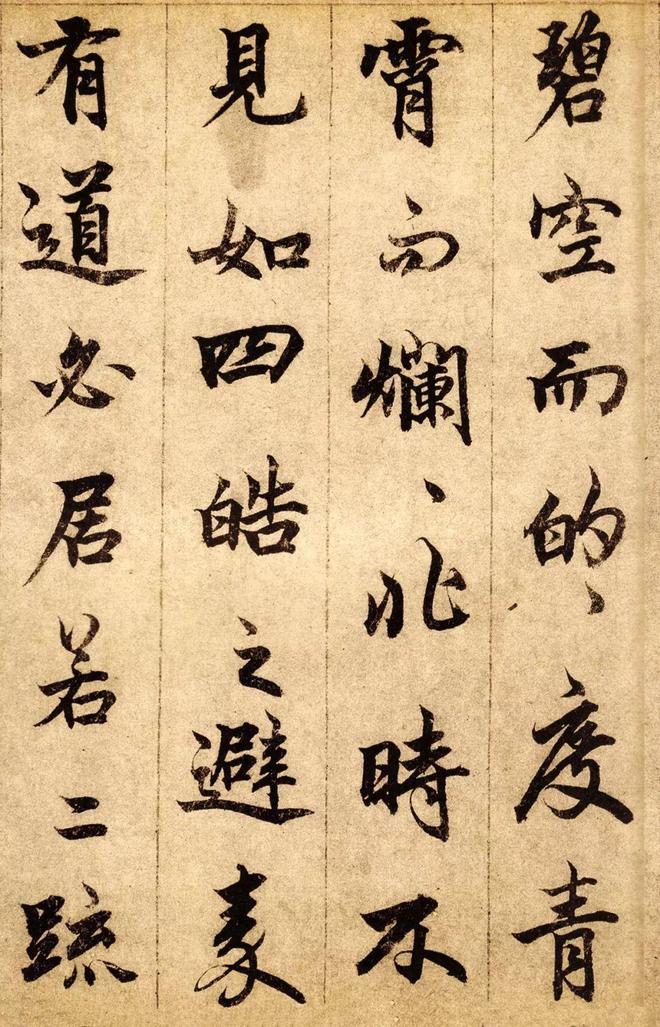 碧空而的〻度青
霄而爛〻非時不
見如四皓之避秦
有道必居若二疏